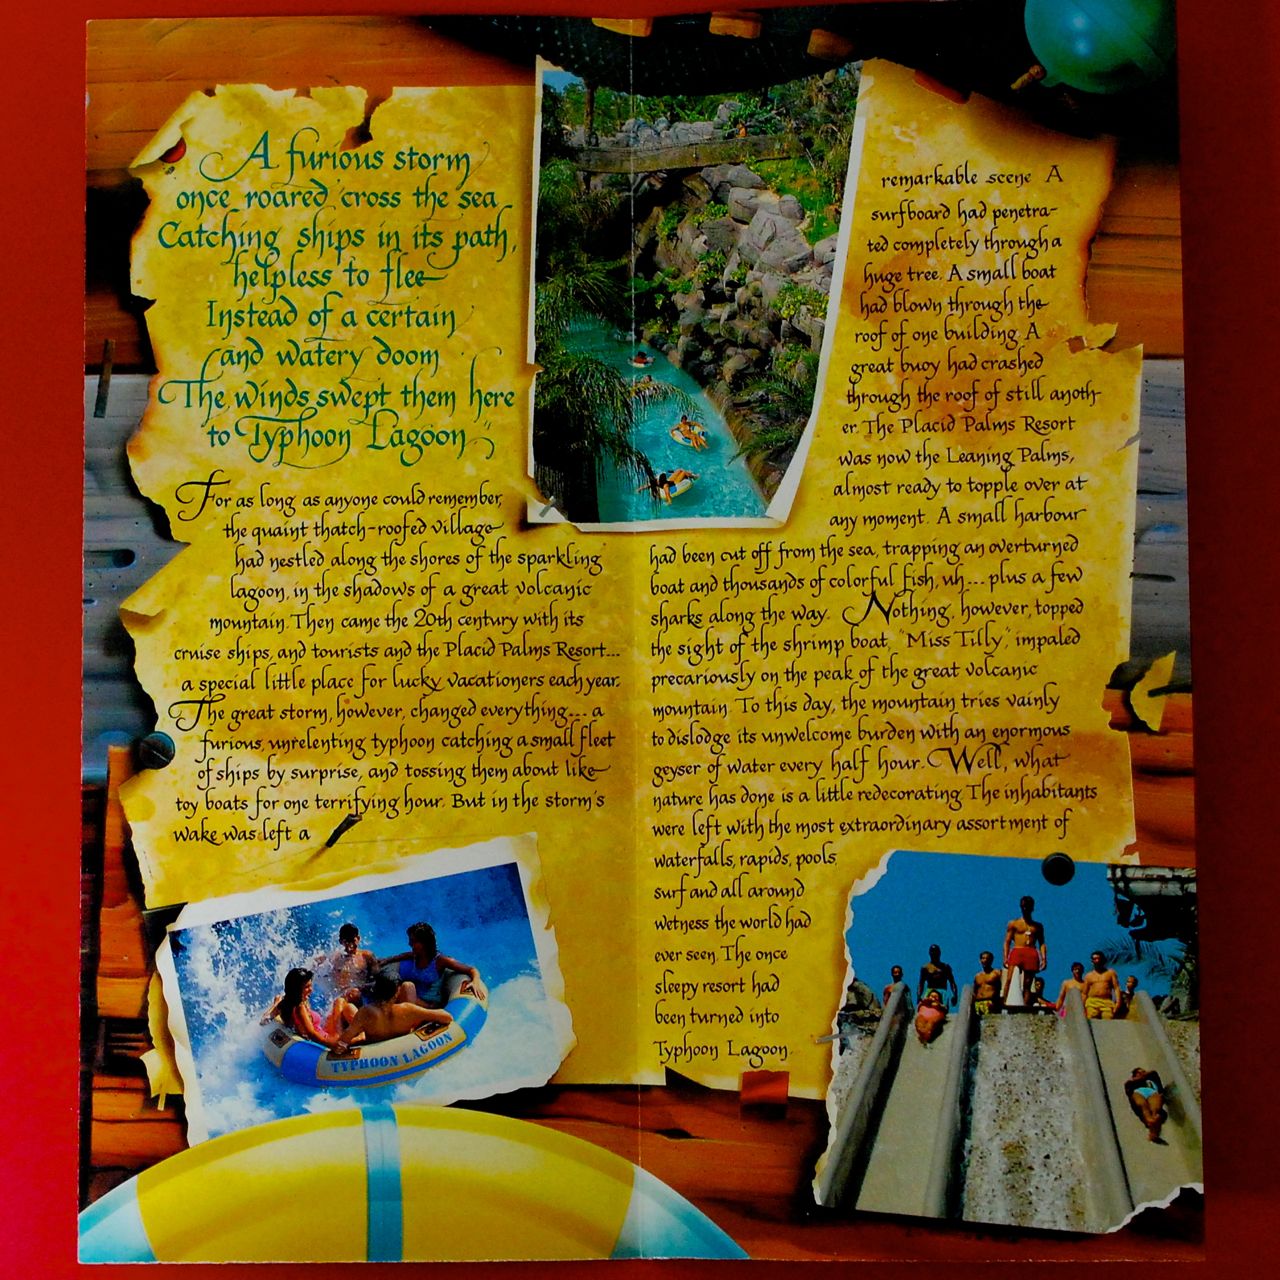 A furious storm
once roared 'cross the sea
Catching ships in its path,
helpless to flee
Instead of a certain
and watery doom
The winds swept them here
to Typhoon Lagoon
For as long as anyone could remember,
the quaint thatch-roofed village
had nestled along the shores of the sparkling
lagoon, in the shadows of a great volcanic
mountain. Then came the 20th century with its
cruise ships, and tourists and the Placid Palms Resort...
a special little place for lucky vacationers each year.
The great storm, however, changed everything... a
furious, unrelenting typhoon catching a small fleet
of ships by surprise, and tossing them about like
toy boats for one terrifying hour. But in the storm's
wake was left a
remarkable scene A
surfboard had penetra-
ted completely through a
huge tree. A small boat
had blown through the
roof of one building. A
great buoy had crashed
through the roof of still anoth-
er. The Placid Palms Resort
was now the Leaning Palms,
almost ready to topple over at
any moment. A small harbour
had been cut off from the sea, trapping an overturned
boat and thousands of colorful fish, uh... plus a few
sharks along the way. Nothing, however, topped
the sight of the shrimp boat, "Miss Tilly," impaled
precariously on the peak of the great volcanic
mountain. To this day, the mountain tries vainly
to dislodge its unwelcome burden with an enormous
geyser of water every half hour. Well, what
nature has done is a little redecorating. The inhabitants
were left with the most extraordinary assortment of
waterfalls, rapids, pools,
surf and all around
wetness the world had
ever seen. The once
sleepy resort had
been turned into
Typhoon Lagoon.
TYPHOON LAGOON